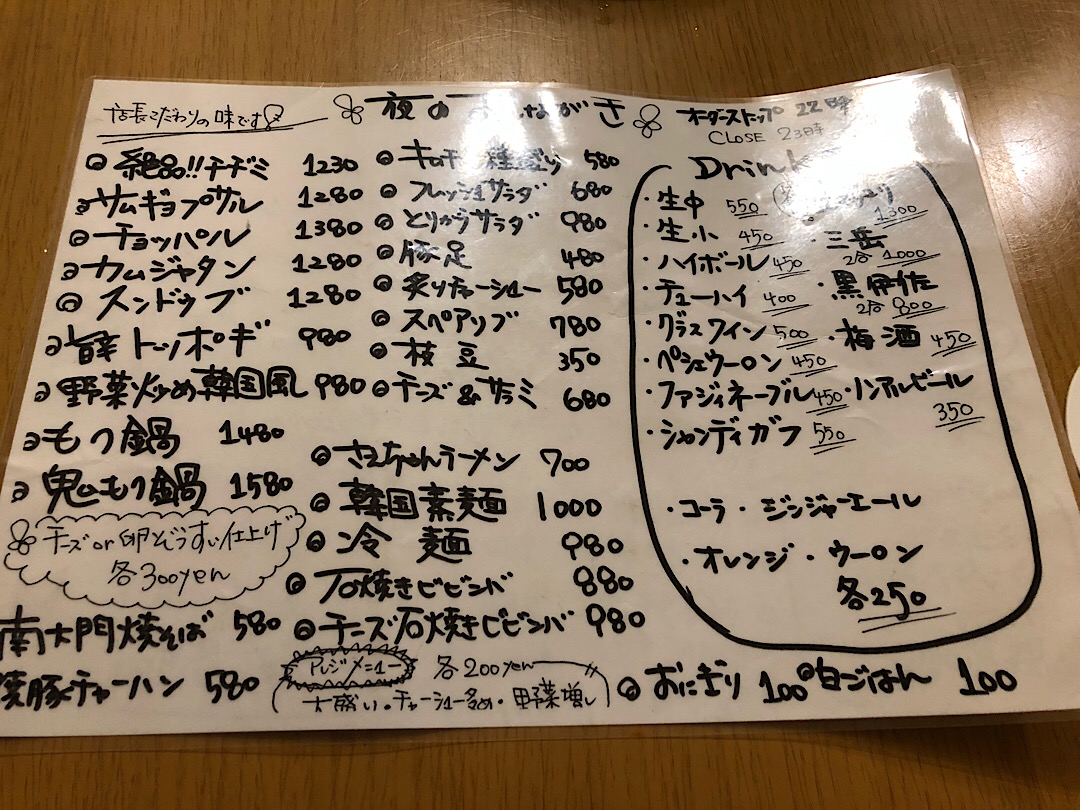 店長こだわりの味です
夜のお ながき
オーダーストップ 22時
CLOSE 23時
絶品!!チヂミ 1230
サムギョプサル 1280
チョッパル 1380
カムジャタン 1280
スンドゥブ 1280
旨辛トッポギ 980
野菜炒め韓国風 980
もつ鍋 1480
鬼もつ鍋 1580
チーズor卵ぞうすい仕上げ
各300yen
南大門焼そば 580
焼豚チャーハン 580
キムチ 種盛り 580
フレッシュサラダ 680
とりからサラダ 980
豚足 480
炙りチャーシュー 580
スペアリブ 780
枝豆 350
チーズ&サラミ 680
さえちゃんラーメン 700
韓国素麺 1000
冷麺 980
石焼きビビンバ 880
チーズ石焼きビビンバ 980
アレンジメニュー 各200yen
大盛い・チャーシュー多め・野菜増し
おにぎり 100
白ごはん 100
Drink
・生中 550
・生小 450
・ハイボール 450
・チューハイ 400
・グラスワイン 500
・ペシェウーロン 450
・ファジィネーブル 450
・シャンディガフ 550
1300
・三岳
2合 1000
・黒伊佐
2合 800
・梅酒 450
・ノンアルビール
350
・コーラ・ジンジャーエール
・オレンジ・ウーロン
各250